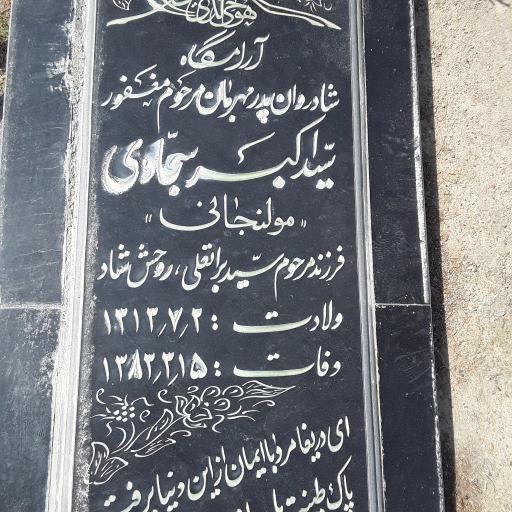 هو الحی الذی
آرامگاه
شادروان پدر مهربان مرحوم مغفور
سیّد اکبر سجّادی
"مولنجانی"
فرزند مرحوم سیّد براتقلی، روحش شاد
ولادت : ۱۳۱۲٫۷٫۲
وفات : ۱۳۸۳٫۳٫۱۵
ای دریغا مرد با ایمان از این دنیا برفت
پاک طینت